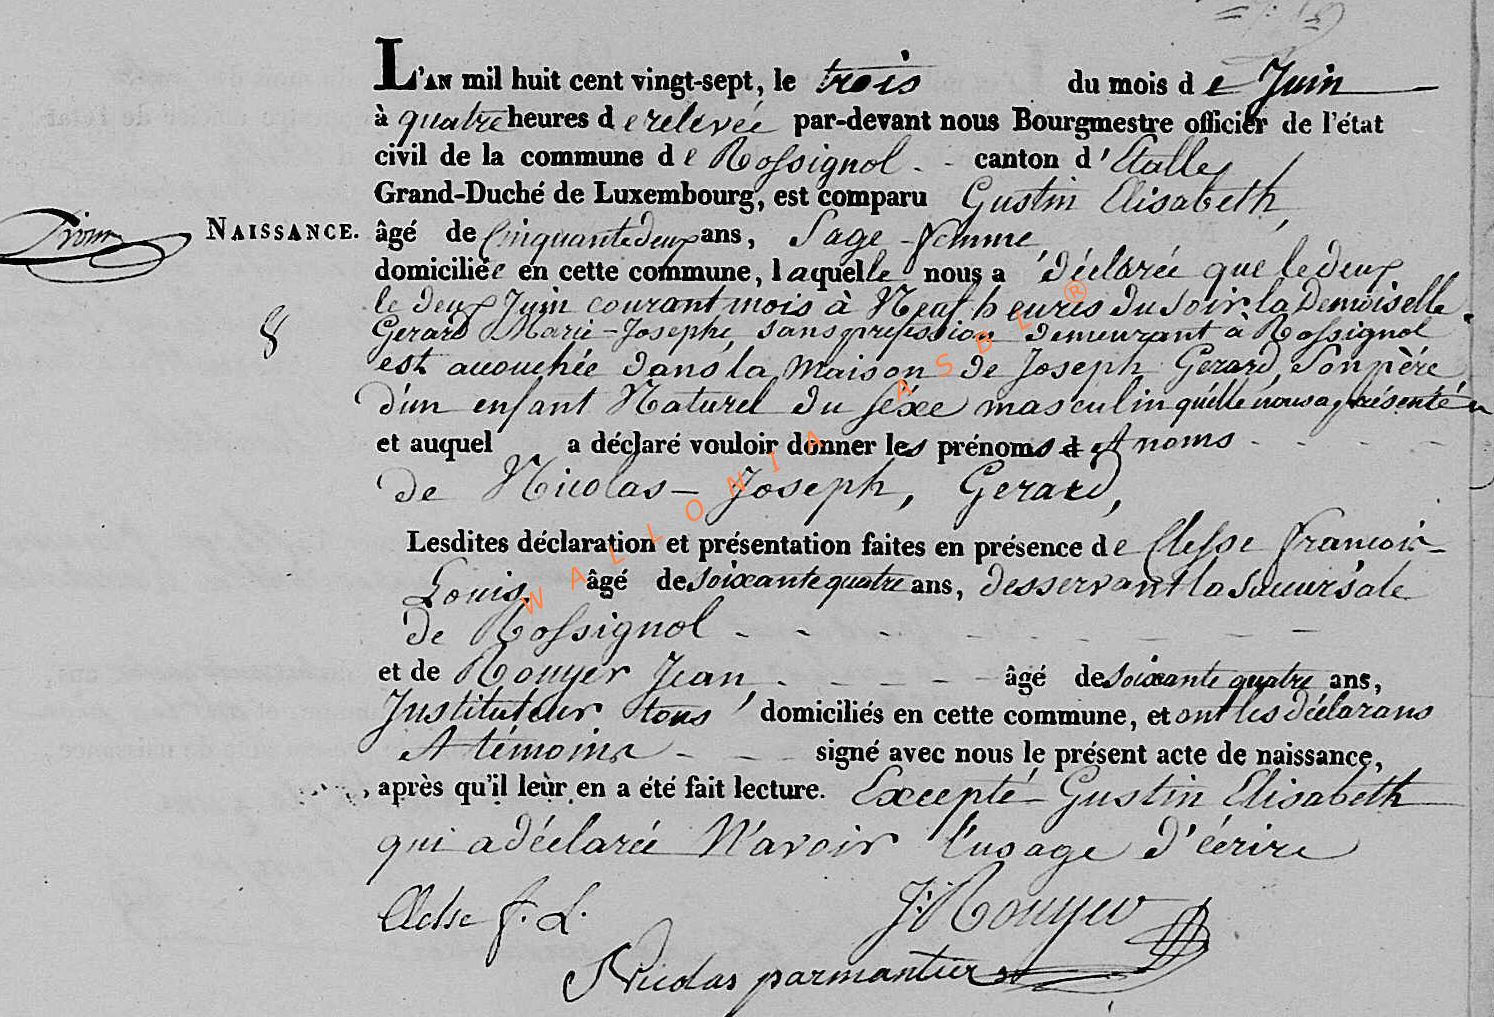 L'AN mil huit cent vingt-sept, le trois du mois de Juin
à quatre heures de relevée par-devant nous Bourgmestre officier de l'état
civil de la commune de Rossignol canton d'Etalle
Grand-Duché de Luxembourg, est comparu Gustin Elisabeth,
NAISSANCE. âgé de Cinquante deux ans, Sage-femme
domiciliée en cette commune, laquelle nous a déclarée que le deux
le deux Juin courant mois à Neuf heures du soir, la Demoiselle
8 Gerard Marie-Josephe, sans profession demeurant à Rossignol
est accouchée dans la maison de Joseph Gerard, Son père
d'un enfant Naturel du séxe masculin qu'elle nous a présenté
et auquel a déclaré vouloir donner les prénoms et noms
de Nicolas-Joseph, Gerard,
Lesdites déclaration et présentation faites en présence de Clesse francois-
Louis, âgé de soixante quatre ans, desservant la Sucursale
de Rossignol
et de Rouyer Jean, âgé de soixante quatre ans,
Instituteur, tous domiciliés en cette commune, et ont les déclarans
et témoins signé avec nous le présent acte de naissance,
après qu'il leur en a été fait lecture. Excepté Gustin Elisabeth
qui a déclarée N'avoir l'usage d'écrire
Clesse f. L. J: Rouyer
Nicolas parmantier
WALLONIA ASBL ®